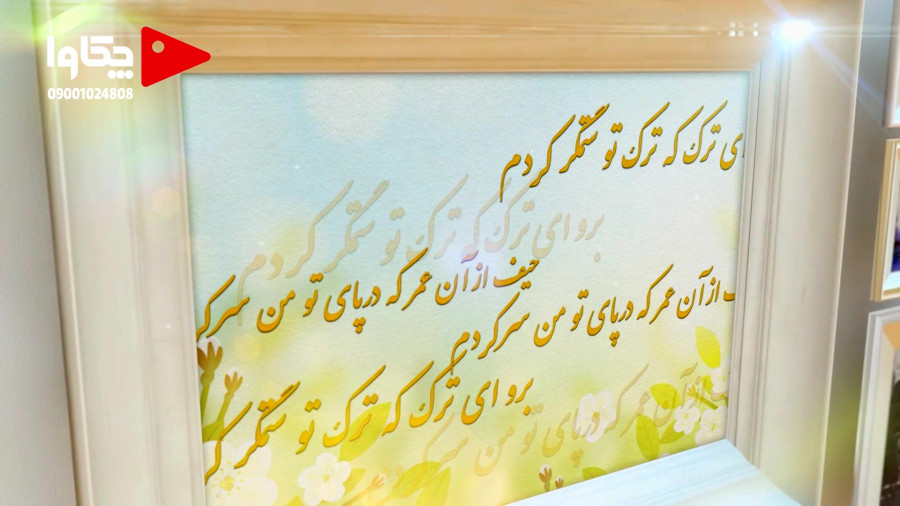 چکاوا
09001024808
ای ترک که ترک تو ستمگر کردم
برو ای ترک که ترک تو ستمگر کردم
حیف از آن عمر که در پای تو من سرکر
از آن عمر که در پای تو من سرکردم
برو ای ترک که ترک تو ستمگر کر
از آن عمر که در پای تو من سرکردم